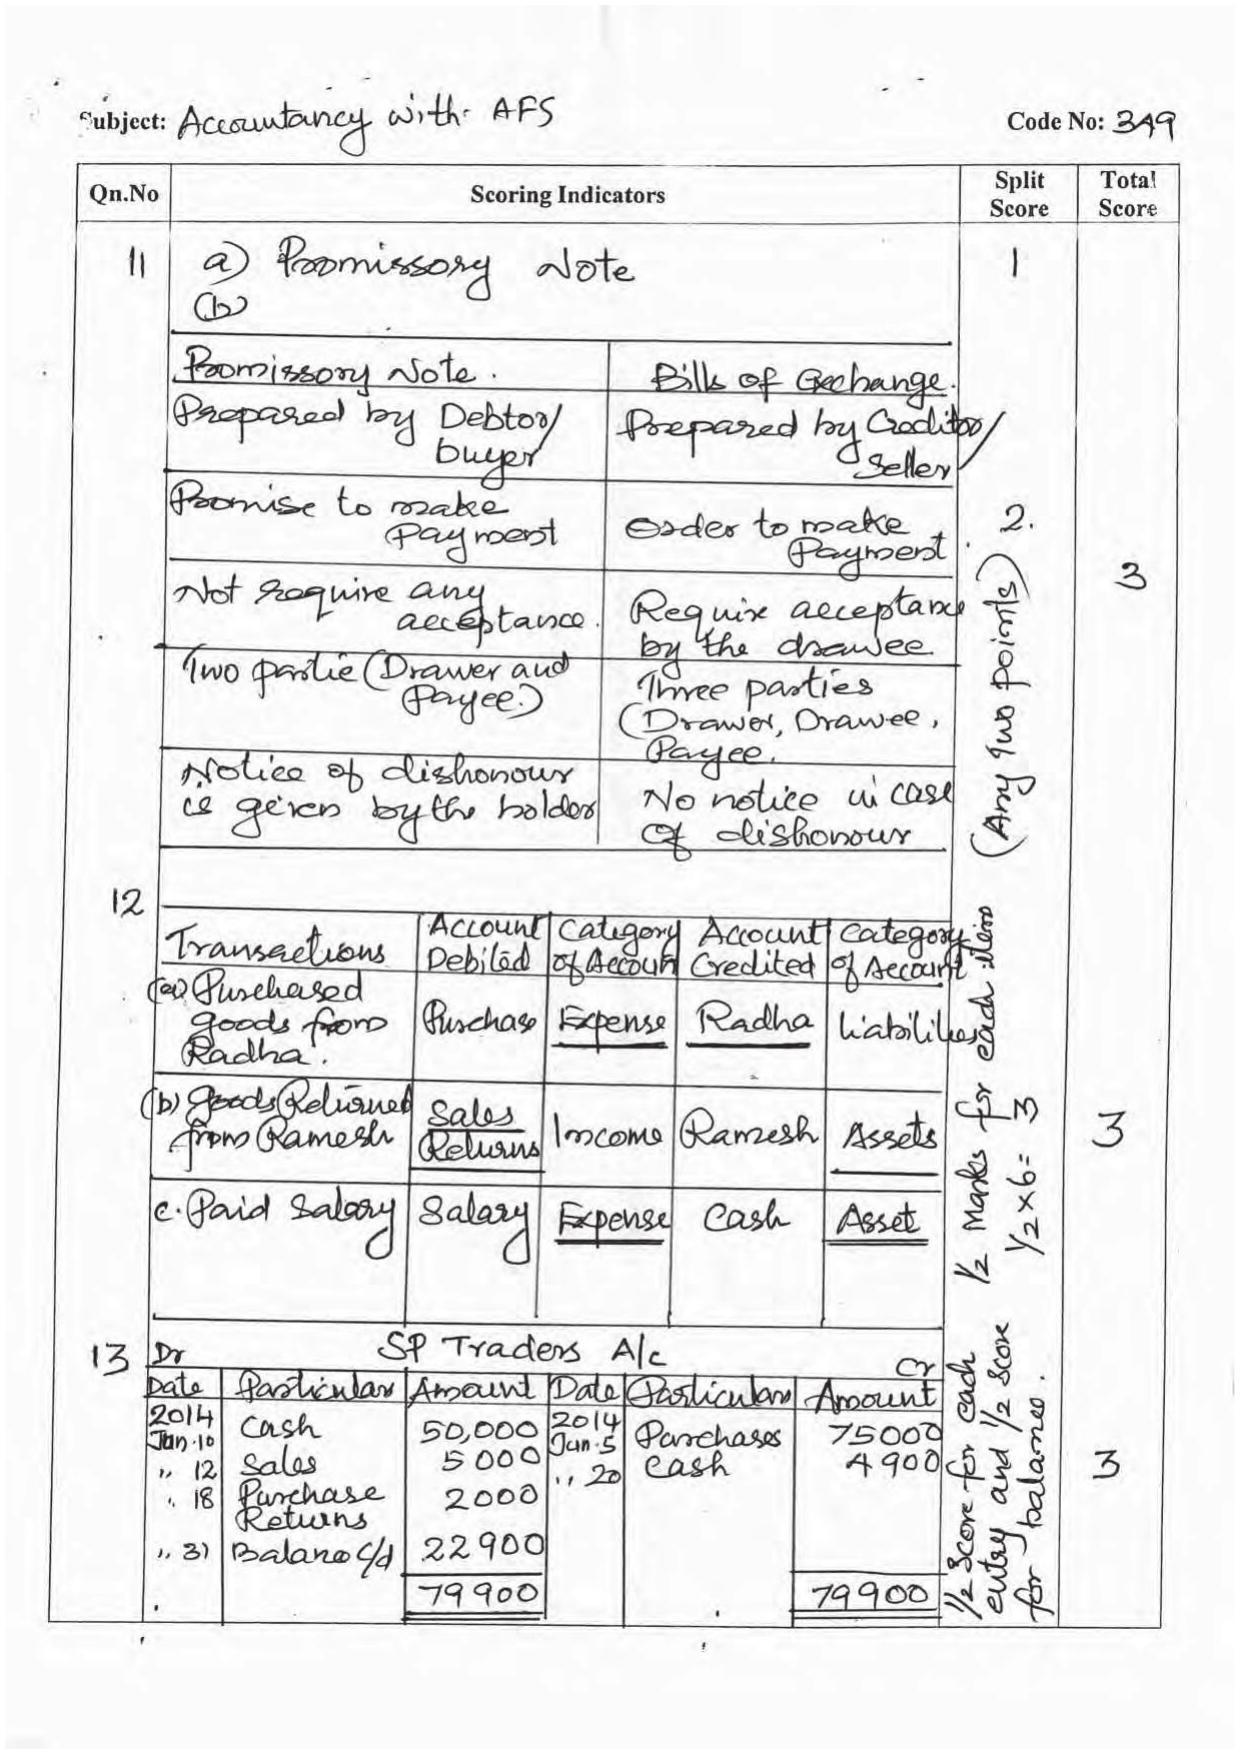 Subject: Accountancy with AFS
Code No: 349
Qn.No Scoring Indicators Split Score Total Score
11 a) Promissory Note 1
(b)
Promissory Note. Bills of Exchange.
Prepared by Debtor/ buyer Prepared by Creditor/ Seller
Promise to make Payment Order to make Payment. 2.
Not require any acceptance. Require acceptance by the drawee.
3
Two partie (Drawer and Payee.) Three parties (Drawer, Drawee, Payee.
Notice of dishonour is given by the holder No notice in case of dishonour
(Any Two points)
12
Transactions Account Debited Category of Account Account Credited Category of Account
(a) Purchased goods from Radha. Purchase Expense Radha Liabilities
(b) goods Returned from Ramesh Sales Returns Income Ramesh Assets 3
c. Paid Salary Salary Expense Cash Asset
1/2 Marks for each item
1/2 x 6 = 3
13 Dr SP Traders A/c Cr
Date Particulars Amount Date Particulars Amount
2014 Jan.10 Cash 50,000 2014 Jan.5 Purchases 75000
,, 12 Sales 5000 ,, 20 Cash 4900 3
,, 18 Purchase Returns 2000
,, 31 Balance c/d 22900
79900 79900
1/2 Score for each
entry and 1/2 Score
for balance.